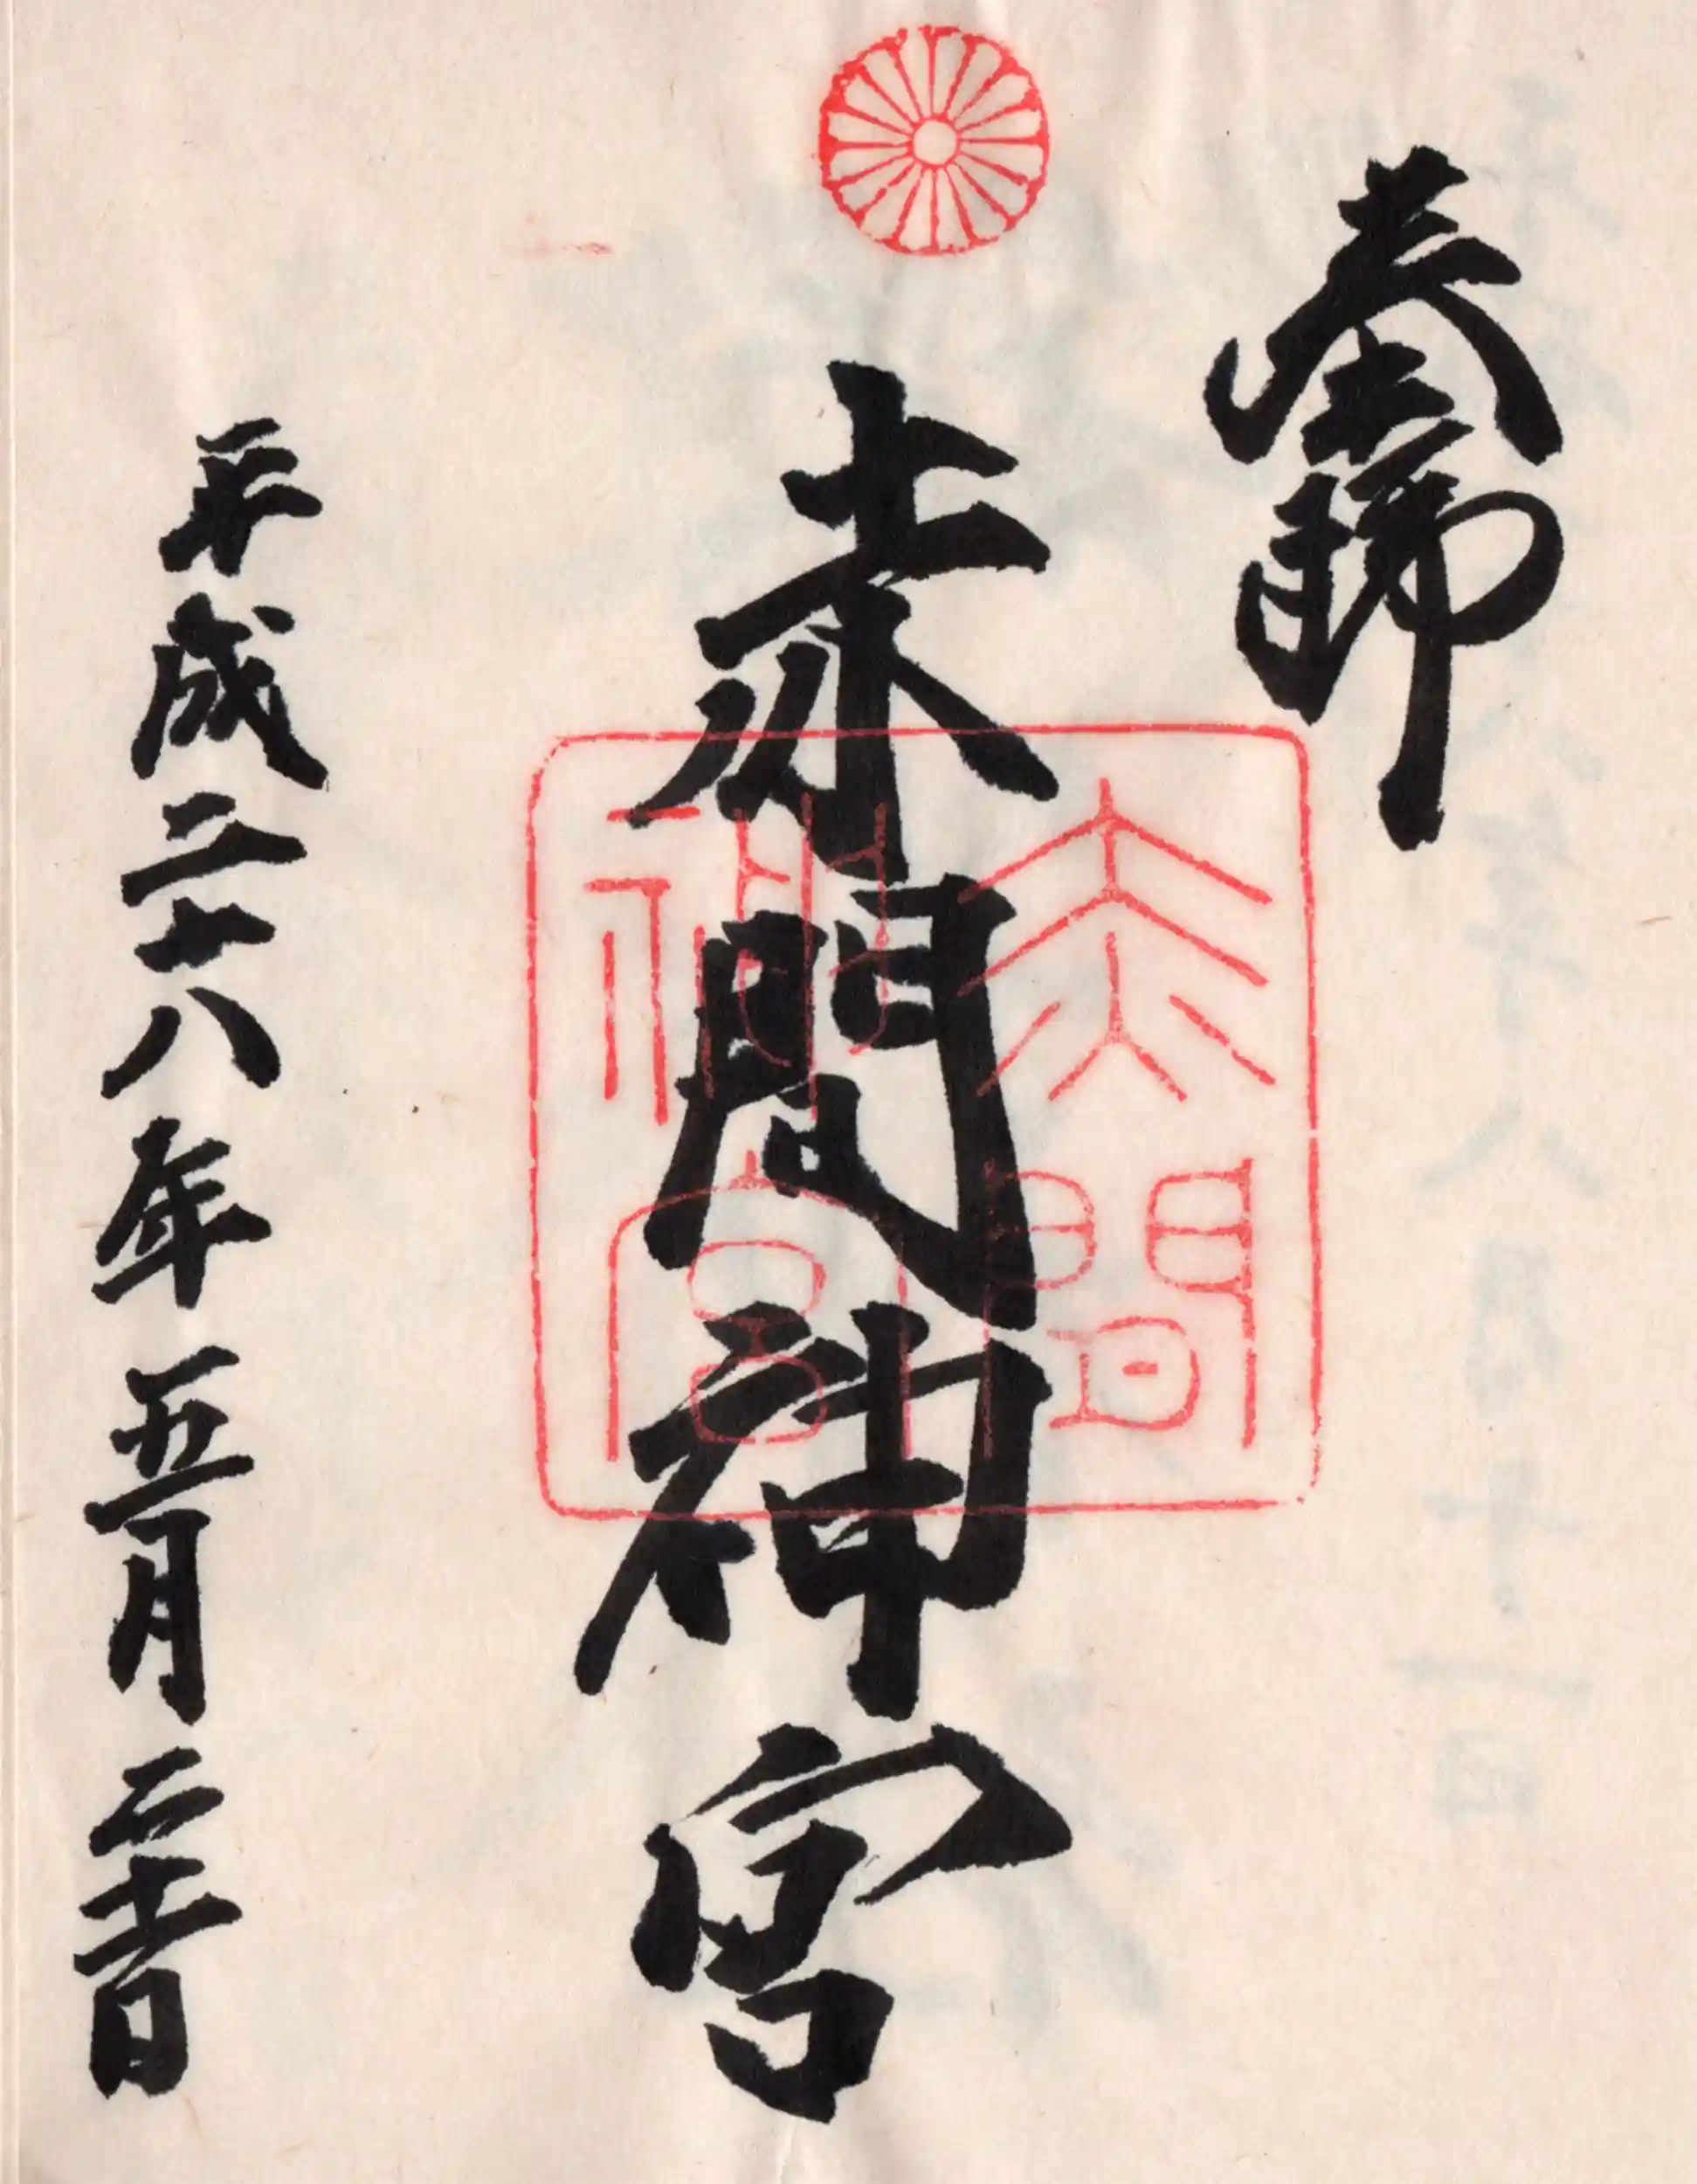 赤間神宮
平成二十八年五月二十一日
赤間
神宮